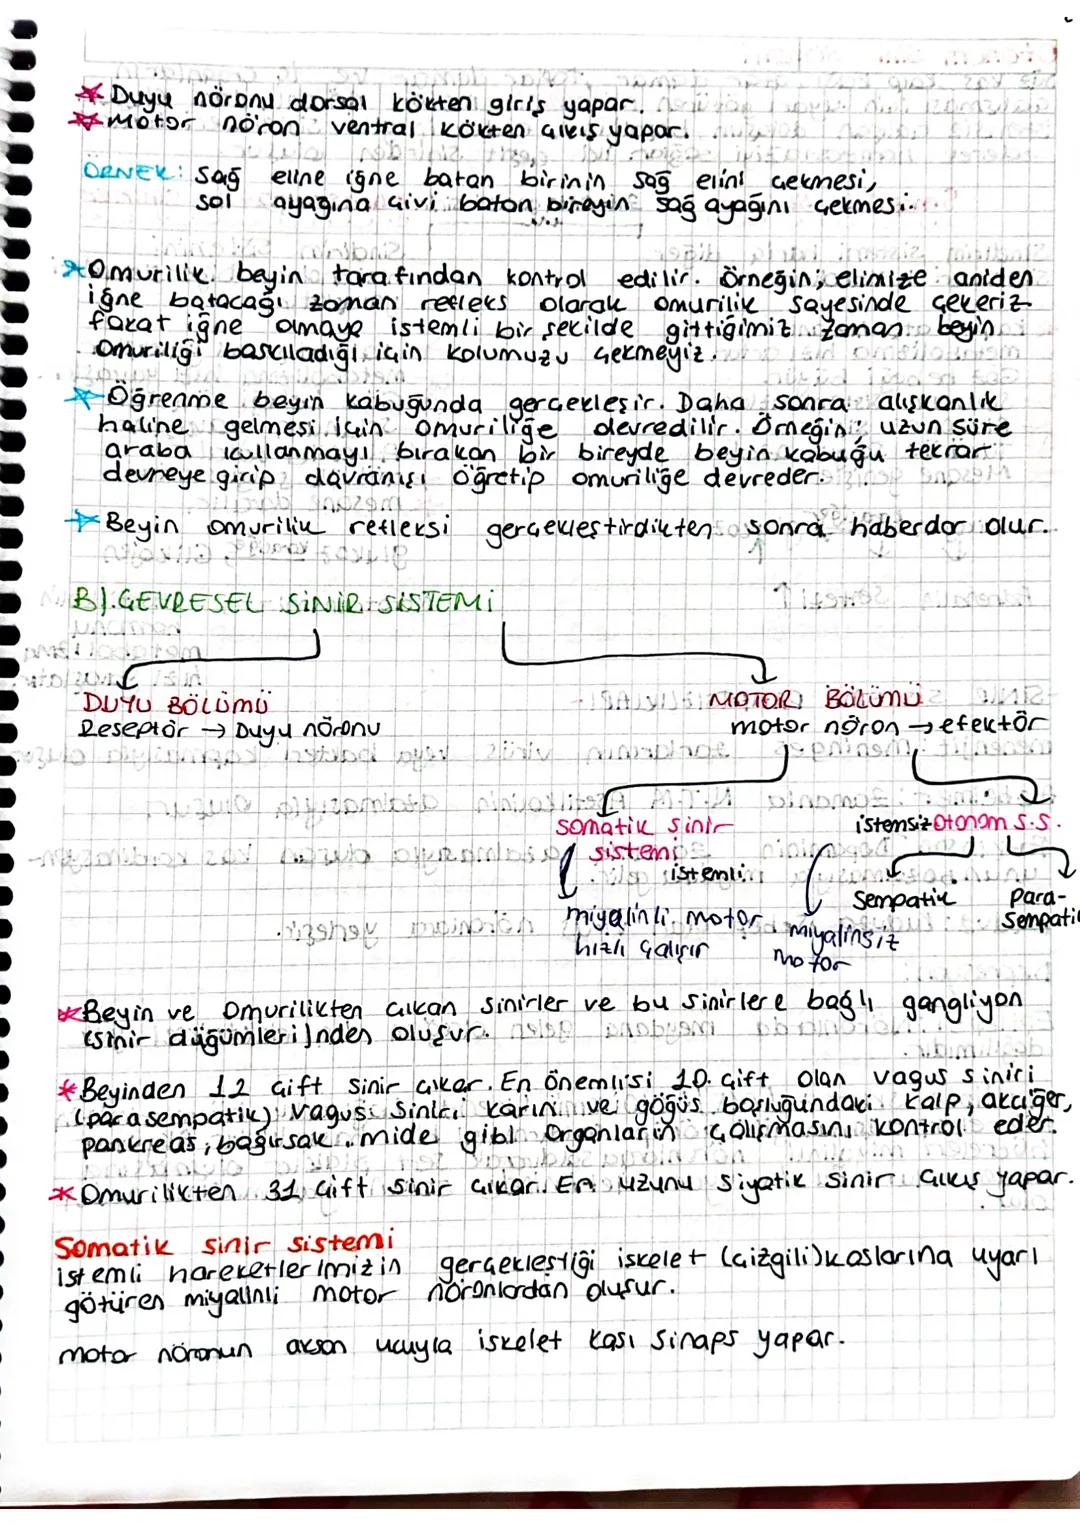 * Duyu nöronu dorsal kökten giriş yapar.
* Motor nöron ventral kökten çıkış yapar.
ÖRNEK: Sağ eline iğne batan birinin sağ elini çekmesi,
sol ayağına çivi batan bireyin sağ ayağını çekmesi.
* Omurilik beyin tarafından kontrol edilir. Örneğin; elimize aniden
iğne batacağı zaman refleks olarak omurilik sayesinde çekeriz
fakat iğne olmaya istemli bir şekilde gittiğimiz zaman beyin
omuriliği baskıladığı için kolumuzu çekmeyiz.
* Öğrenme beyin kabuğunda gerçekleşir. Daha sonra alışkanlık
haline gelmesi için omuriliğe devredilir. Örneğin; uzun süre
araba kullanmayı bırakan bir bireyde beyin kabuğu tekrar
devreye girip davranışı öğretip omuriliğe devreder.
* Beyin omurilik refleksi gerçekleştirdikten sonra haberdar olur.
B) ÇEVRESEL SİNİR SİSTEMİ
DUYU BÖLÜMÜ MOTOR BÖLÜMÜ
Reseptör → Duyu nöronu motor nöron → efektör
somatik sinir istemsiz otonom s.s.
sistemi
istemli
Sempatik Para-
Sempatik
miyalinli motor miyalinsiz
hızlı çalışır motor
* Beyin ve Omurilikten çıkan sinirler ve bu sinirlere bağlı gangliyon
(sinir düğümleri)nden oluşur.
* Beyinden 12 çift sinir çıkar. En önemlisi 10. çift olan vagus siniri
(parasempatik) Vagus siniri karın ve göğüs boşluğundaki kalp, akciğer,
pankreas, bağırsak, mide gibi organların çalışmasını kontrol eder.
* Omurilikten 31 çift sinir çıkar. En uzunu siyatik sinir çıkış yapar.
Somatik sinir sistemi
istemli hareketlerimizin gerçekleştiği iskelet (çizgili) kaslarına uyarı
götüren miyalinli motor nöronlardan oluşur.
motor nöronun akson ucuyla iskelet kası sinaps yapar.